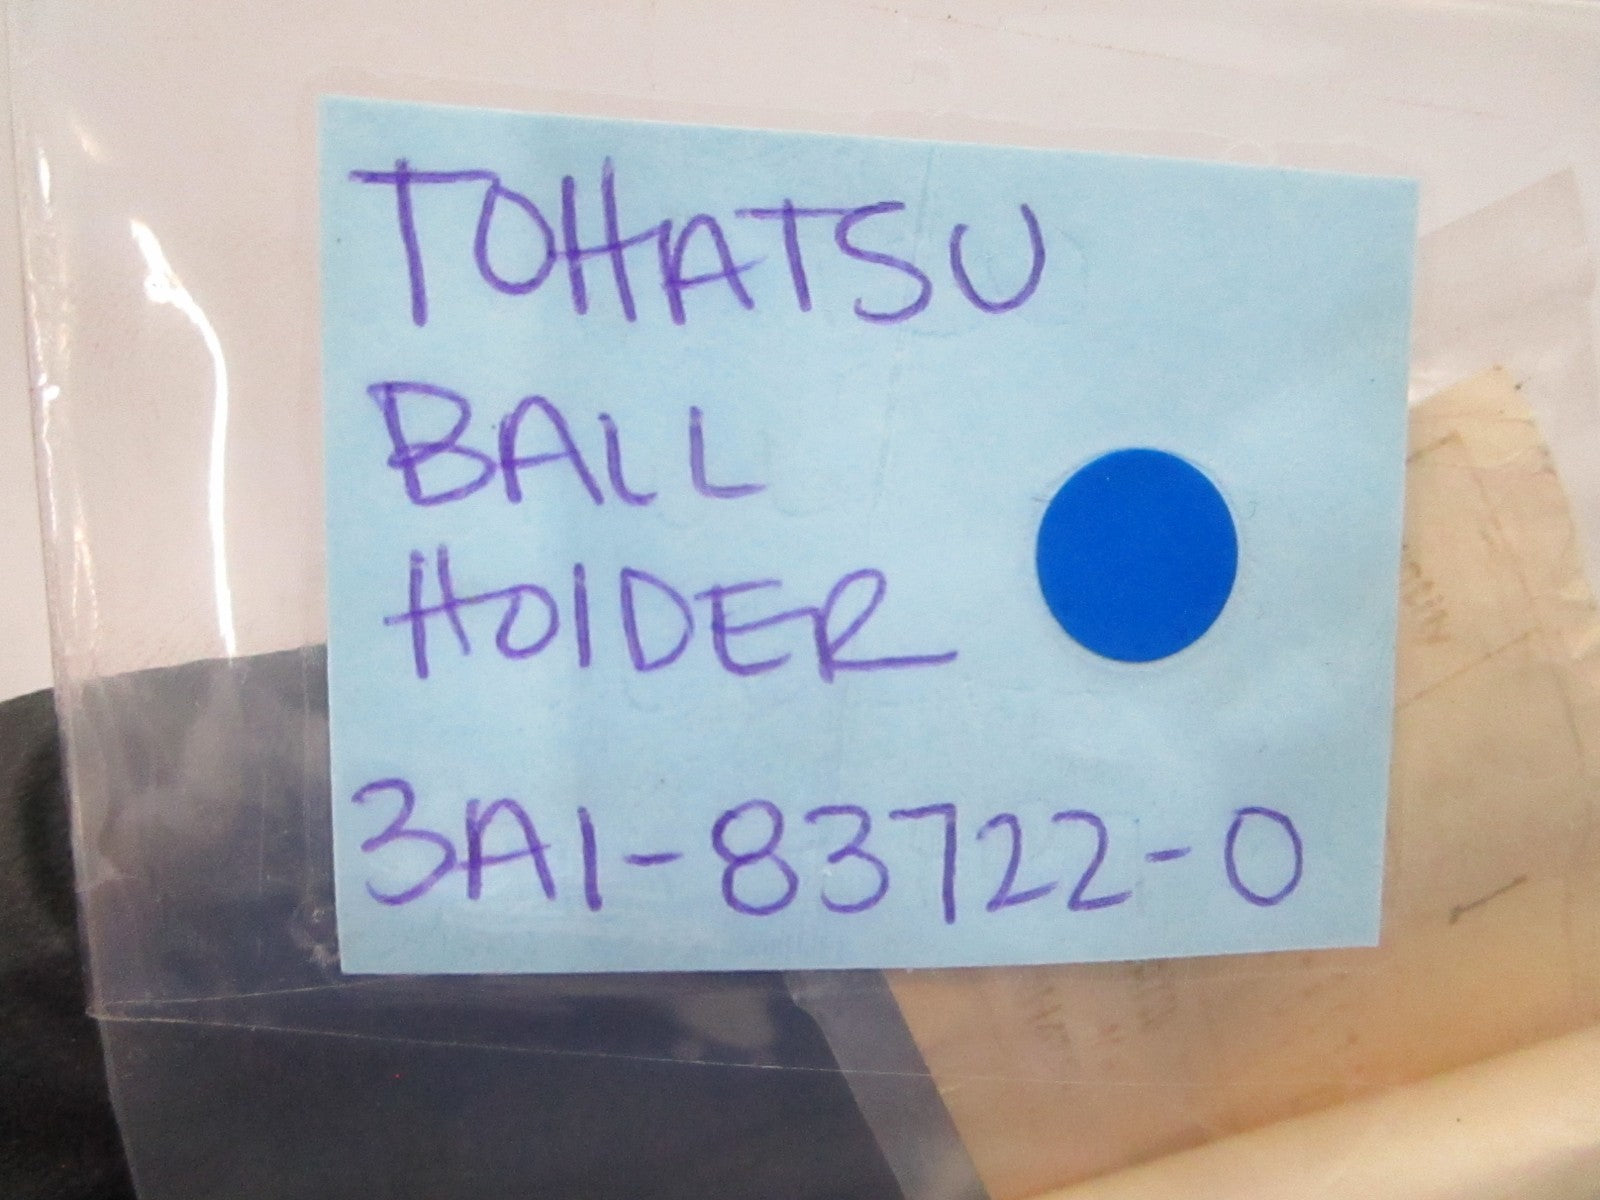 TOHATSU
BALL
HOLDER
3A1-83722-0